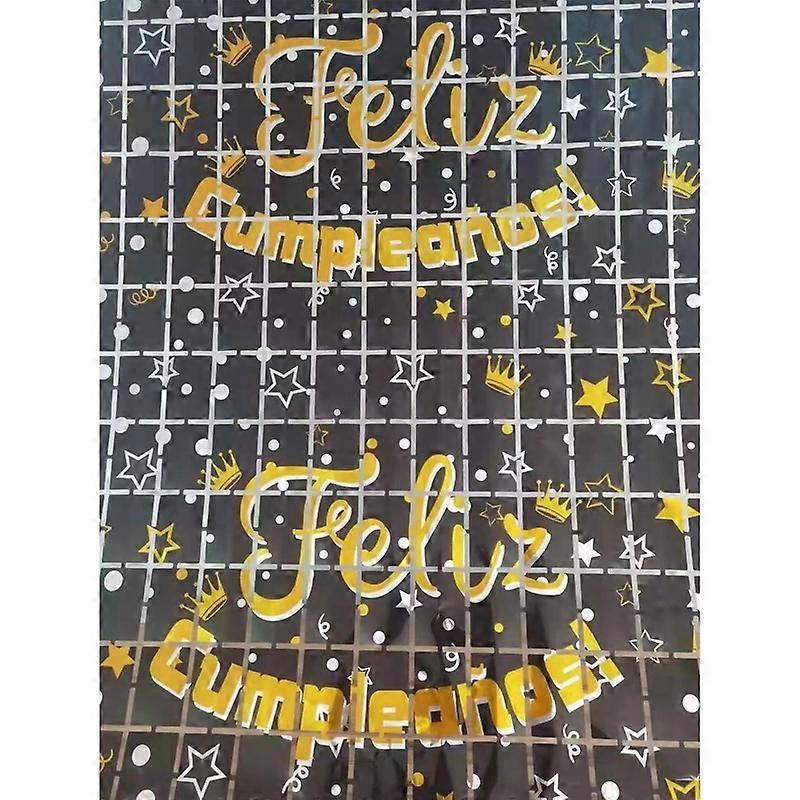 Feliz
Cumpleaños!
Feliz
Cumpleaños!